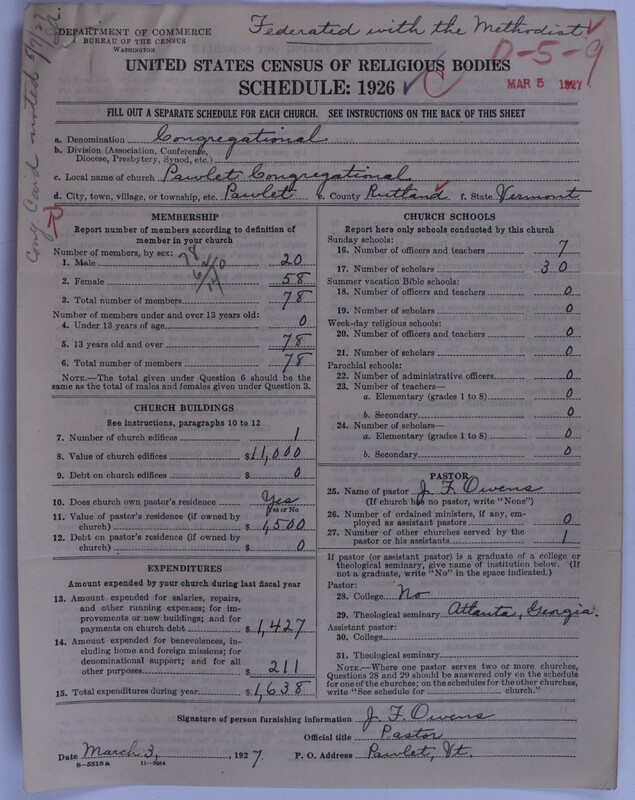 Federated with the Methodist.
DEPARTMENT OF COMMERCE
BUREAU OF THE CENSUS
WASHINGTON
D-5-9
MAR 5 1927
UNITED STATES CENSUS OF RELIGIOUS BODIES
SCHEDULE: 1926 ✓ C
FILL OUT A SEPARATE SCHEDULE FOR EACH CHURCH. SEE INSTRUCTIONS ON THE BACK OF THIS SHEET
a. Denomination Congregational
b. Division (Association, Conference, Diocese, Presbytery, Synod, etc.)
c. Local name of church Pawlet Congregational
d. City, town, village, or township, etc. Pawlet e. County Rutland f. State Vermont
MEMBERSHIP
Report number of members according to definition of
member in your church
Number of members, by sex:
1. Male 20
2. Female 58
3. Total number of members 78
Number of members under and over 13 years old:
4. Under 13 years of age 0
5. 13 years old and over 78
6. Total number of members 78
NOTE.—The total given under Question 6 should be
same as the total of males and females given under Question 3.
CHURCH BUILDINGS
See instructions, paragraphs 10 to 12
7. Number of church edifices 1
8. Value of church edifices $11,000
9. Debt on church edifices $ 0
10. Does church own pastor's residence Yes
Yes or No
11. Value of pastor's residence (if owned by
church) $ 1,500
12. Debt on pastor's residence (if owned by
church) $ 0
EXPENDITURES
Amount expended by your church during last fiscal year
13. Amount expended for salaries, repairs,
and other running expenses; for im-
provements or new buildings; and for
payments on church debt $ 1,427
14. Amount expended for benevolences, in-
cluding home and foreign missions; for
denominational support; and for all
other purposes $ 211
15. Total expenditures during year $ 1,638
CHURCH SCHOOLS
Report here only schools conducted by this church
Sunday schools:
16. Number of officers and teachers 7
17. Number of scholars 30
Summer vacation Bible schools:
18. Number of officers and teachers 0
19. Number of scholars 0
Week-day religious schools:
20. Number of officers and teachers 0
21. Number of scholars 0
Parochial schools:
22. Number of administrative officers 0
23. Number of teachers—
a. Elementary (grades 1 to 8) 0
b. Secondary 0
24. Number of scholars—
a. Elementary (grades 1 to 8) 0
b. Secondary 0
PASTOR
25. Name of pastor J. F. Owens
(If church has no pastor, write "None")
26. Number of ordained ministers, if any, em-
ployed as assistant pastors 0
27. Number of other churches served by the
pastor or his assistants 1
If pastor (or assistant pastor) is a graduate of a college or
theological seminary, give name of institution below. (If
not a graduate, write "No" in the space indicated.)
Pastor:
28. College No
29. Theological seminary Atlanta, Georgia.
Assistant pastor:
30. College
31. Theological seminary
NOTE.—Where one pastor serves two or more churches,
Questions 28 and 29 should be answered only on the schedule
for one of the churches; on the schedules for the other churches,
write "See schedule for church."
Signature of person furnishing information J. F. Owens
Official title Pastor
Date March 3, 1927. P. O. Address Pawlet, Vt.
8—5518a 11—9664